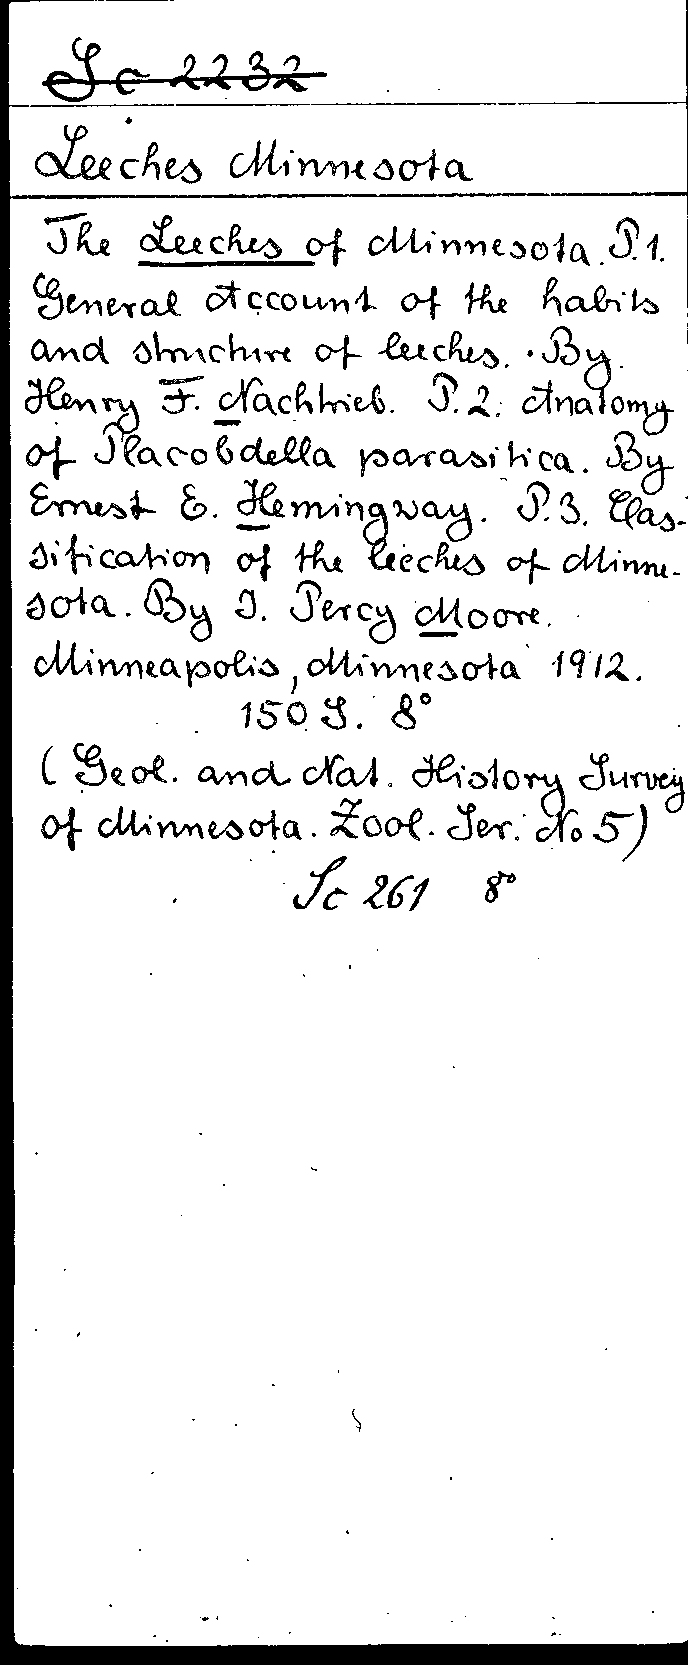 Sc 2232
Leeches Minnesota
The Leeches of Minnesota. P.1.
General Account of the habits
and structure of leeches. By
Henry F. Nachtrieb. P.2. Anatomy
of Placobdella parasitica. By
Ernest E. Hemingway. P.3. Clas-
sification of the leeches of Minne-
sota. By J. Percy Moore.
Minneapolis, Minnesota 1912.
150 S. 8°
(Geol. and Nat. History Survey
of Minnesota. Zool. Ser. No 5)
Sc 261 8°